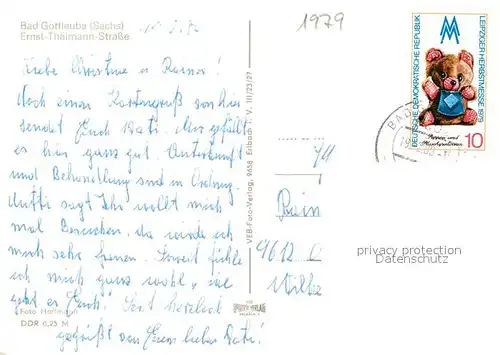 Bad Gottleuba (Sachs)
Ernst-Thälmann-Straße
1979
Liebe Christine u. Rainer!
Noch einen Kartengruß von hier
sendet Euch Vati. Mir gefällt
es hier ganz gut. Unterkunft
und Behandlung sind in Ordnung.
Mutti sagt Ihr wollt mich
mal Besuchen, da würde ich
mich sehr freuen. Soweit fühle
ich mich ganz wohl, wie
geht es Euch! Seit herzlich
gegrüßt von Euren lieben Vati!
Foto Hoffmann
DDR 0,25 M
VEB-Foto-Verlag, 9658 Erlbach i. V. III/23/27
DEUTSCHE DEMOKRATISCHE REPUBLIK
LEIPZIGER HERBSTMESSE 1979
Puppen und
10
BAD
Rain
9612
privacy protection
ansichtskarten-center.de